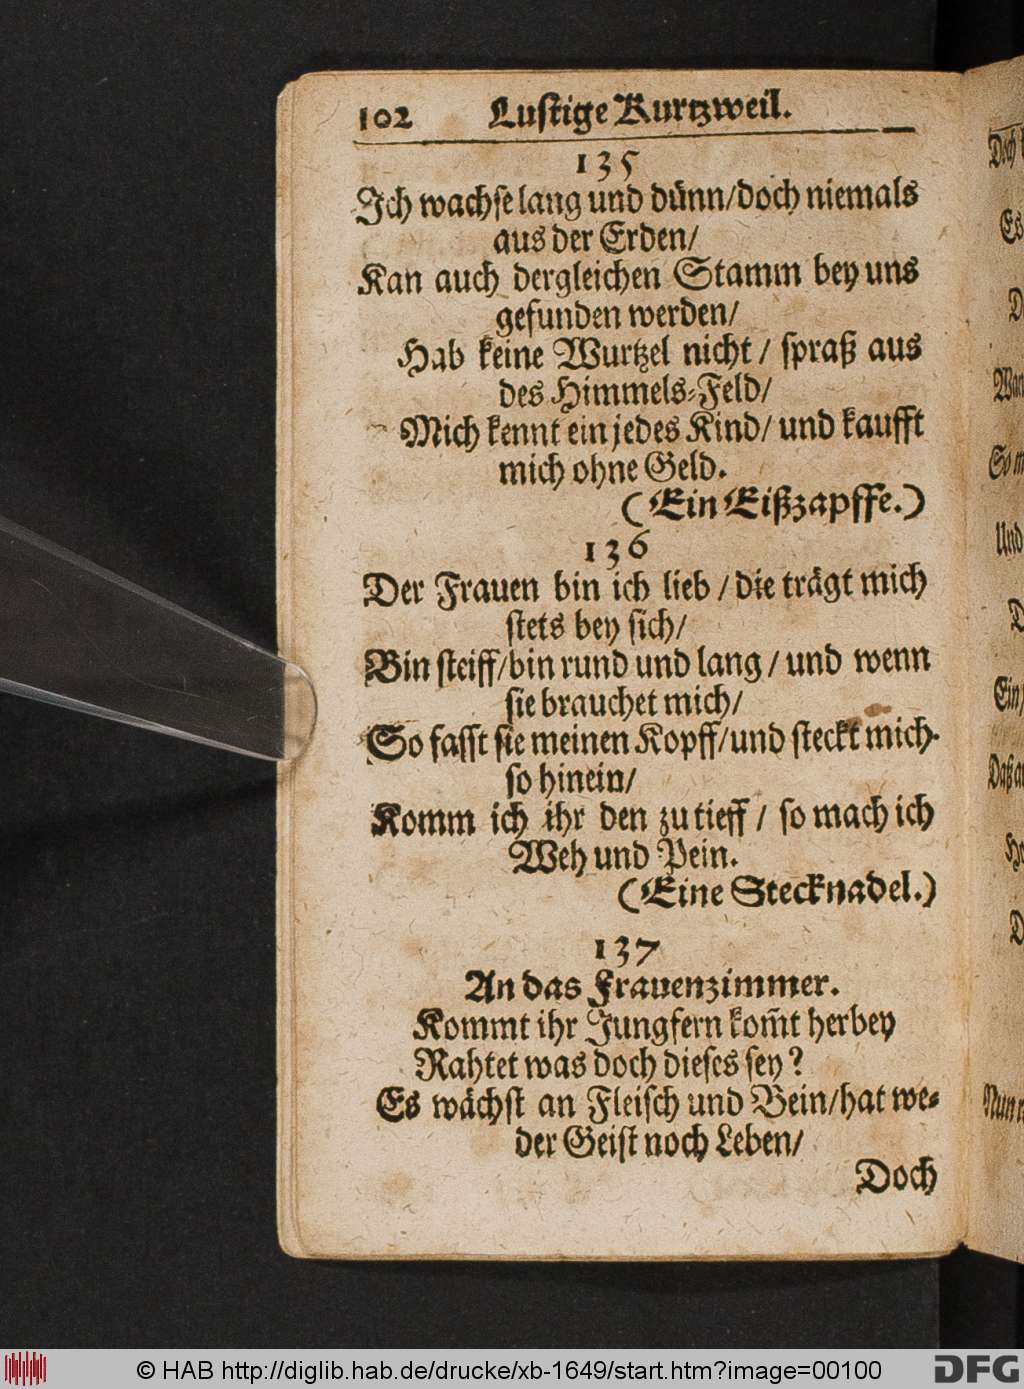 102 Lustige Kurtzweil.
135
Ich wachse lang und dünn/doch niemals
aus der Erden/
Kan auch dergleichen Stamm bey uns
gefunden werden/
Hab keine Wurtzel nicht / spraß aus
des Himmels-Feld/
Mich kennt ein jedes Kind/ und kaufft
mich ohne Geld.
(Ein Eißzapffe.)
136
Der Frauen bin ich lieb / die trägt mich
stets bey sich/
Bin steiff/bin rund und lang / und wenn
sie brauchet mich/
So fasst sie meinen Kopff/und steckt mich
so hinein/
Komm ich ihr den zu tieff / so mach ich
Weh und Pein.
(Eine Stecknadel.)
137
An das Frauenzimmer.
Kommt ihr Jungfern kom̃t herbey
Rahtet was doch dieses sey?
Es wächst an Fleisch und Bein/hat we-
der Geist noch Leben/
Doch
Doch
Es
D
So m
Und
D
Ein
Daß
D
Nun
© HAB http://diglib.hab.de/drucke/xb-1649/start.htm?image=00100
DFG